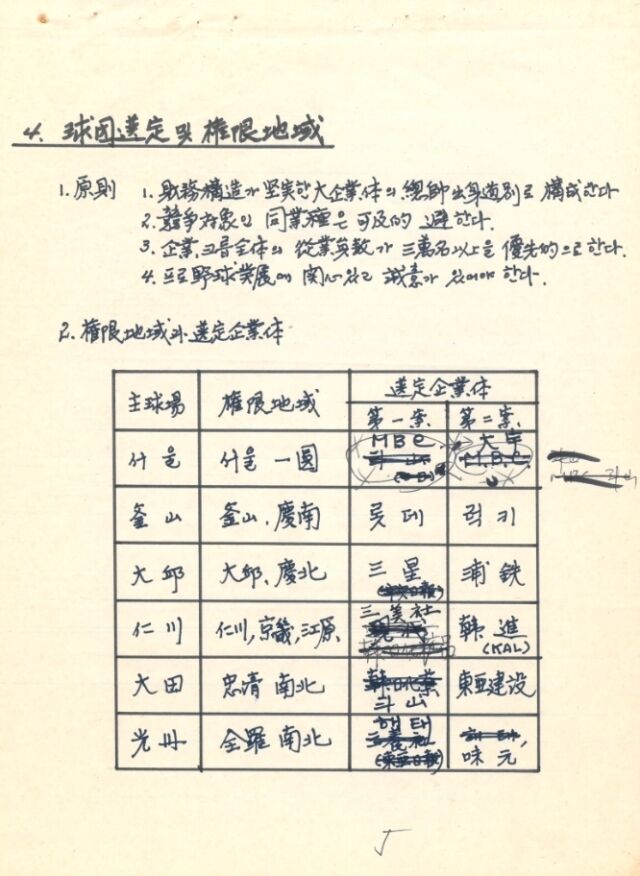 4. 球団選定 및 権限地域
1. 原則 1. 財務構造가 坚実한 大企業体의 總帥 出身道別로 構成한다
2. 競争対象인 同業種은 可及的 避한다.
3. 企業그룹全体의 從業員数가 三萬名以上을 優先的으로 한다.
4. 프로野球発展에 関心있고 誠意가 있어야 한다.
2. 権限地域과 選定企業体
主球場 権限地域 選定企業体
第一案 第二案
서울 서울 一圓 MBC 大宇
M.B.C
釜山 釜山, 慶南 롯데 럭키
大邱 大邱, 慶北 三星 浦鉄
(中央日報)
仁川 仁川, 京畿, 江原 三美社 韓進
現代 (KAL)
大田 忠清南北 韓国化薬 東亜建設
斗山
光州 全羅南北 해태 해태,
三養社 味元
(東亜日報)
5